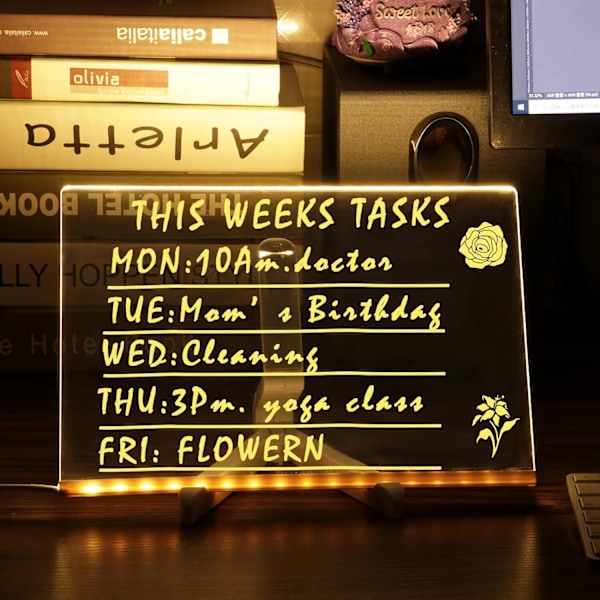 www.callaitalia.com callaitalia
olivia
Arletta
THE HOTEL BOOK
LLY HOPPEN STYLE
e Hotel
Sweet Love
THIS WEEKS TASKS
MON:10Am.doctor
TUE:Mom's Birthday
WED:Cleaning
THU:3Pm. yoga class
FRI: FLOWERN